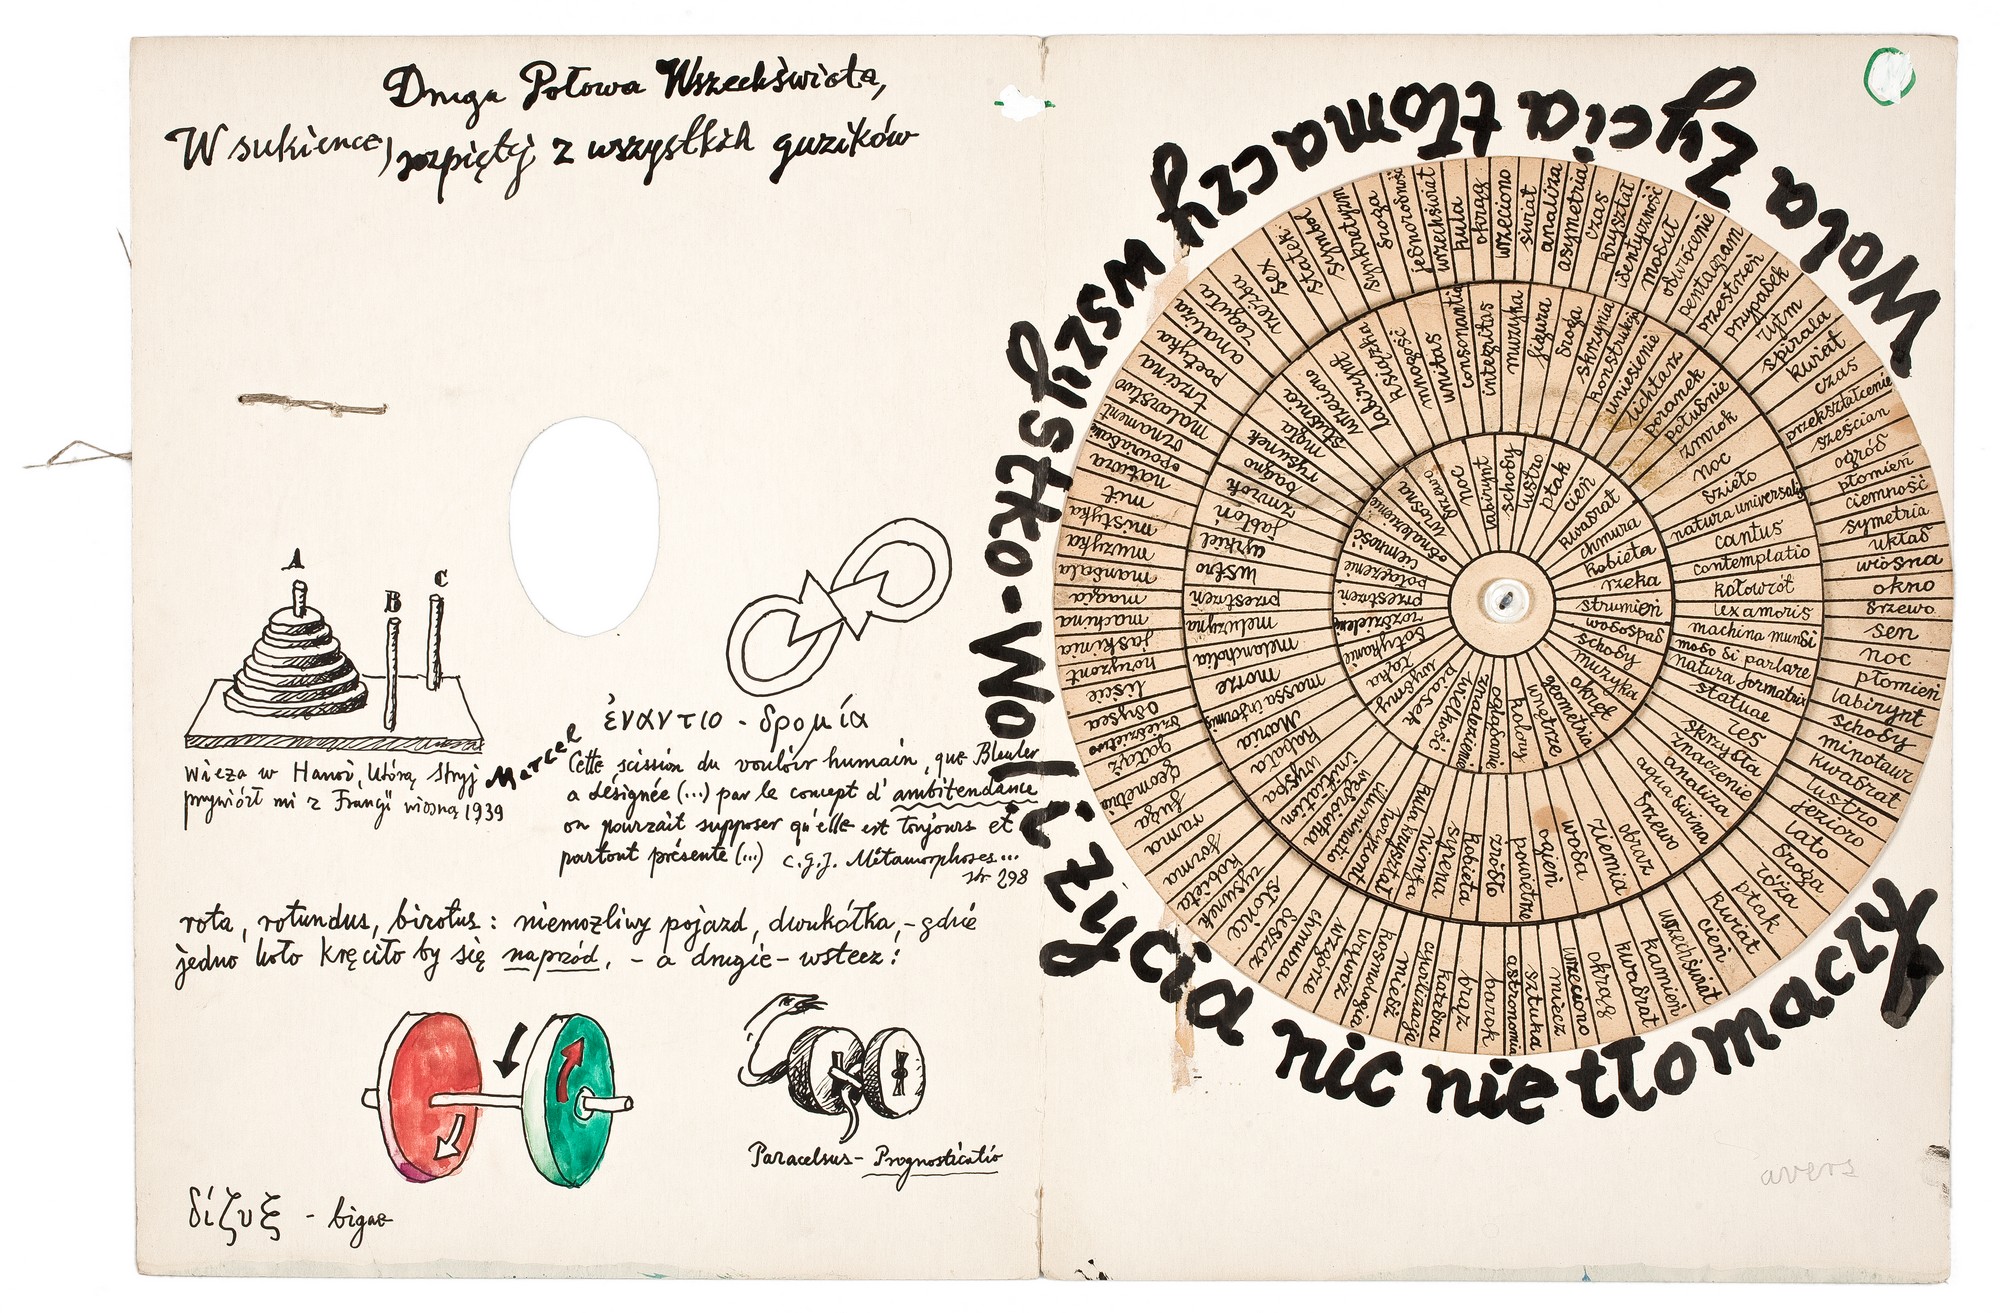 Druga Połowa Wszechświata,
W sukience, rozpiętej z wszystkich guzików
A
B
C
Wieża w Hanoi, którą stryj Marcel
przywiózł mi z Francji wiosną 1939
ἐναντιο - δρομία
Cette scission du vouloir humain, que Bleuler
a désignée (...) par le concept d'ambitendance
on pourrait supposer qu'elle est toujours et
partout présente (...) C.G.J. Métamorphoses...
str 298
rota, rotundus, birotus: niemożliwy pojazd, dwukółka, - gdzie
jedno koło kręciło by się naprzód, - a drugie - wstecz!
Paracelsus - Prognosticatio
δίζυξ - bigae
Wola życia tłomaczy wszystko - Woli życia nic nie tłomaczy
wrzeciono
świat
analiza
asymetria
czas
kryształ
identyczność
odwrócenie
pentagram
przestrzeń
przypadek
rytm
spirala
kwiat
czas
przekształcenie
sześcian
ogród
płomień
ciemność
symetria
układ
wiosna
okno
drzewo
sen
noc
płomień
labirynt
schody
minotaur
kwadrat
lustro
jezioro
lato
droga
róża
ptak
kwiat
cień
wszechświat
kamień
kwadrat
okrąg
wrzeciono
miecz
sztuka
astronomia
barok
katedra
cywilizacja
miedź
kosmologia
wzgórze
chmura
deszcz
słońce
rysunek
kobieta
forma
rama
fuga
geometria
dzieciństwo
Odysea
liście
horyzont
jaskinia
machina
magia
mandala
muzyka
mistyka
mit
natura
opowiadanie
ornament
malarstwo
trzcina
poetyka
analiza
reguła
rzeźba
sex
statek
symbol
synkretyzm
droga
jednorodność
wszechświat
kula
okrąg
integritas
muzyka
figura
droga
skrzynia
konstrukcja
uniesienie
lichtarz
poranek
południe
zmrok
noc
dzieło
natura universalis
cantus
contemplatio
kołowrót
lex amoris
machina mundi
modo di parlare
natura formatrix
statuae
res
skrzydła
znaczenie
analiza
aqua divina
drzewo
obraz
ziemia
woda
ogień
powietrze
źródło
kobieta
syrena
kula kryształ
horyzont
illuminatio
wędrówka
initiation
wyspa
kobieta
Maria
massa informis
morze
melancholia
meluzyna
przestrzeń
lustro
cyrkiel
jabłoń
zmrok
bagno
rysunek
mgła
studnia
wrzeciono
labirynt
książka
mnogość
unitas
consonantia
schody
lustro
ptak
cień
kwadrat
chmura
kobieta
rzeka
strumień
wodospad
schody
muzyka
okręt
geometria
wnętrze
kolory
oglądanie
znalezienie
wielkość
piasek
wydmy
łąka
dotykanie
rozdzielenie
przestrzeń
położenie
ciemność
odnalezienie
wiosna
drzewo
noc
labirynt
avers